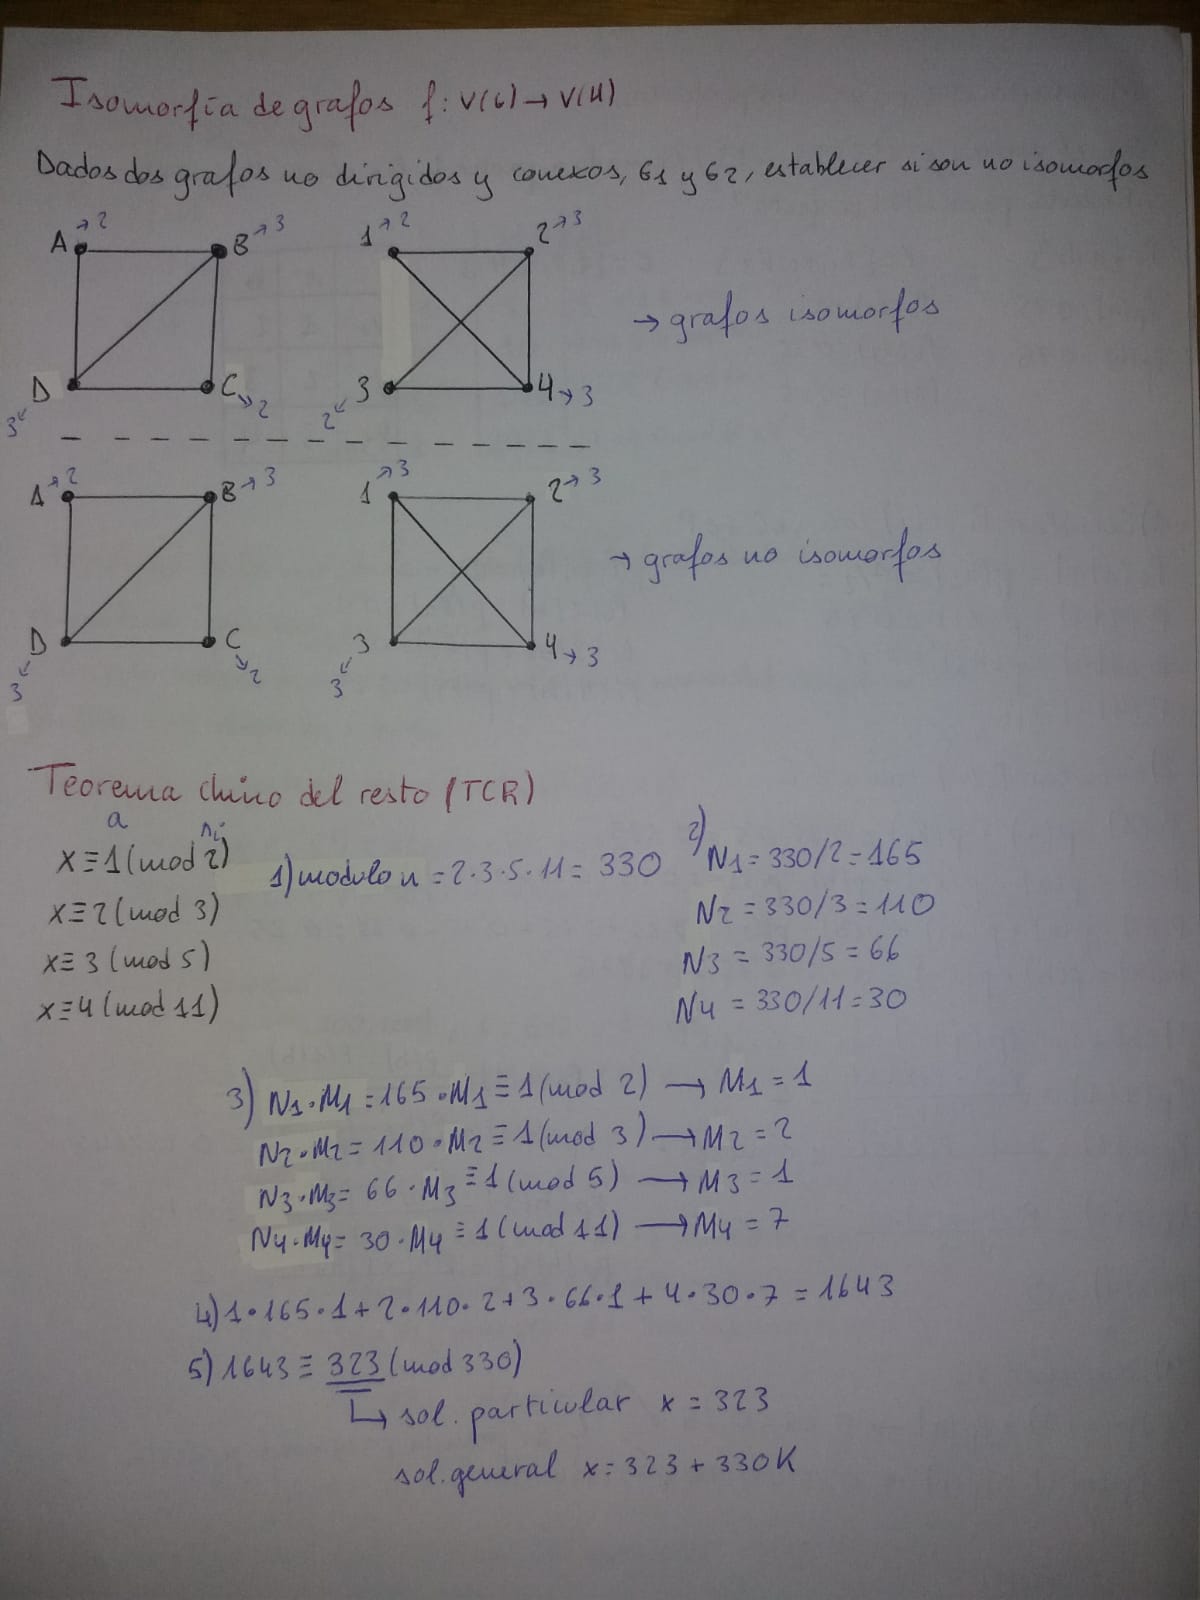 Isomorfía de grafos f: V(G) → V(H)
Dados dos grafos no dirigidos y conexos, G1 y G2, establecer si son no isomorfos
A →2 B →3 1 →2 2 →3
→ grafos isomorfos
D C 3 4 →3
3 2 2
A →2 B →3 1 →3 2 →3
→ grafos no isomorfos
D C 3 4 →3
3 2 3
Teorema chino del resto (TCR)
a ni
x ≡ 1 (mod 2)
x ≡ 2 (mod 3)
x ≡ 3 (mod 5)
x ≡ 4 (mod 11)
1) modulo n = 2·3·5·11 = 330
2) N1 = 330/2 = 165
N2 = 330/3 = 110
N3 = 330/5 = 66
N4 = 330/11 = 30
3) N1·M1 = 165·M1 ≡ 1 (mod 2) → M1 = 1
N2·M2 = 110·M2 ≡ 1 (mod 3) → M2 = 2
N3·M3 = 66·M3 ≡ 1 (mod 5) → M3 = 1
N4·M4 = 30·M4 ≡ 1 (mod 11) → M4 = 7
4) 1·165·1 + 2·110·2 + 3·66·1 + 4·30·7 = 1643
5) 1643 ≡ 323 (mod 330)
↳ sol. particular x = 323
sol. general x = 323 + 330K